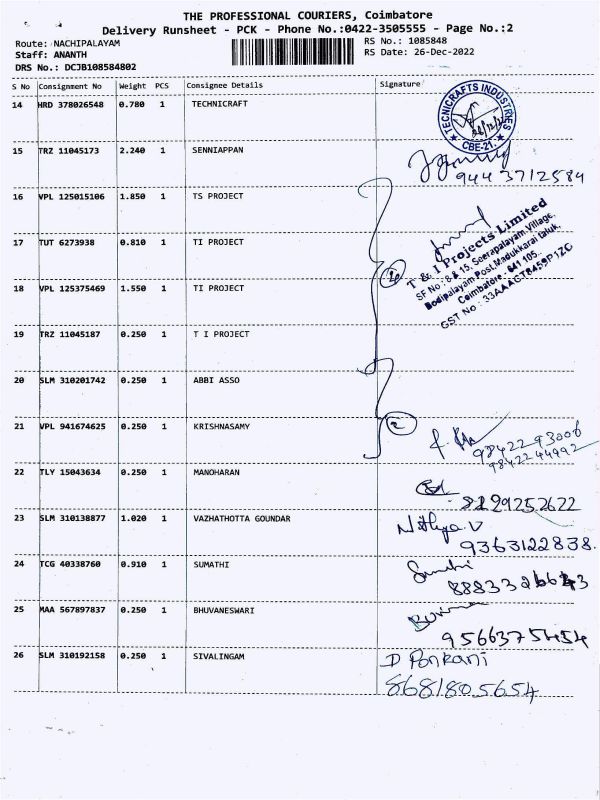 THE PROFESSIONAL COURIERS, Coimbatore
Delivery Runsheet - PCK - Phone No.:0422-3505555 - Page No.:2
Route: NACHIPALAYAM
RS No.: 1085848
Staff: ANANTH
RS Date: 26-Dec-2022
DRS No.: DCJB108584802
S No Consignment No Weight PCS Consignee Details Signature
14 HRD 378026548 0.780 1 TECHNICRAFT
TECNICRAFTS INDUSTRIES
CBE-21.
15 TRZ 11045173 2.240 1 SENNIAPPAN
944 3712584
16 VPL 125015106 1.850 1 TS PROJECT
17 TUT 6273938 0.810 1 TI PROJECT
T & I Projects Limited
SF No : 8 & 15, Seerapalayam Village,
Bodipalayam Post, Madukkarai taluk,
Coimbatore - 641 105.
GST No : 33AAACT8459P1ZC
18 VPL 125375469 1.550 1 TI PROJECT
19 TRZ 11045187 0.250 1 T I PROJECT
20 SLM 310201742 0.250 1 ABBI ASSO
21 VPL 941674625 0.250 1 KRISHNASAMY
2
98422 93006
9842244992
22 TLY 15043634 0.250 1 MANOHARAN
8129252622
23 SLM 310138877 1.020 1 VAZHATHOTTA GOUNDAR
Nithya.V
9363122838.
24 TCG 40338760 0.910 1 SUMATHI
Sumathi
25 MAA 567897837 0.250 1 BHUVANESWARI
9566375454
26 SLM 310192158 0.250 1 SIVALINGAM
D Ponrani
8681805654